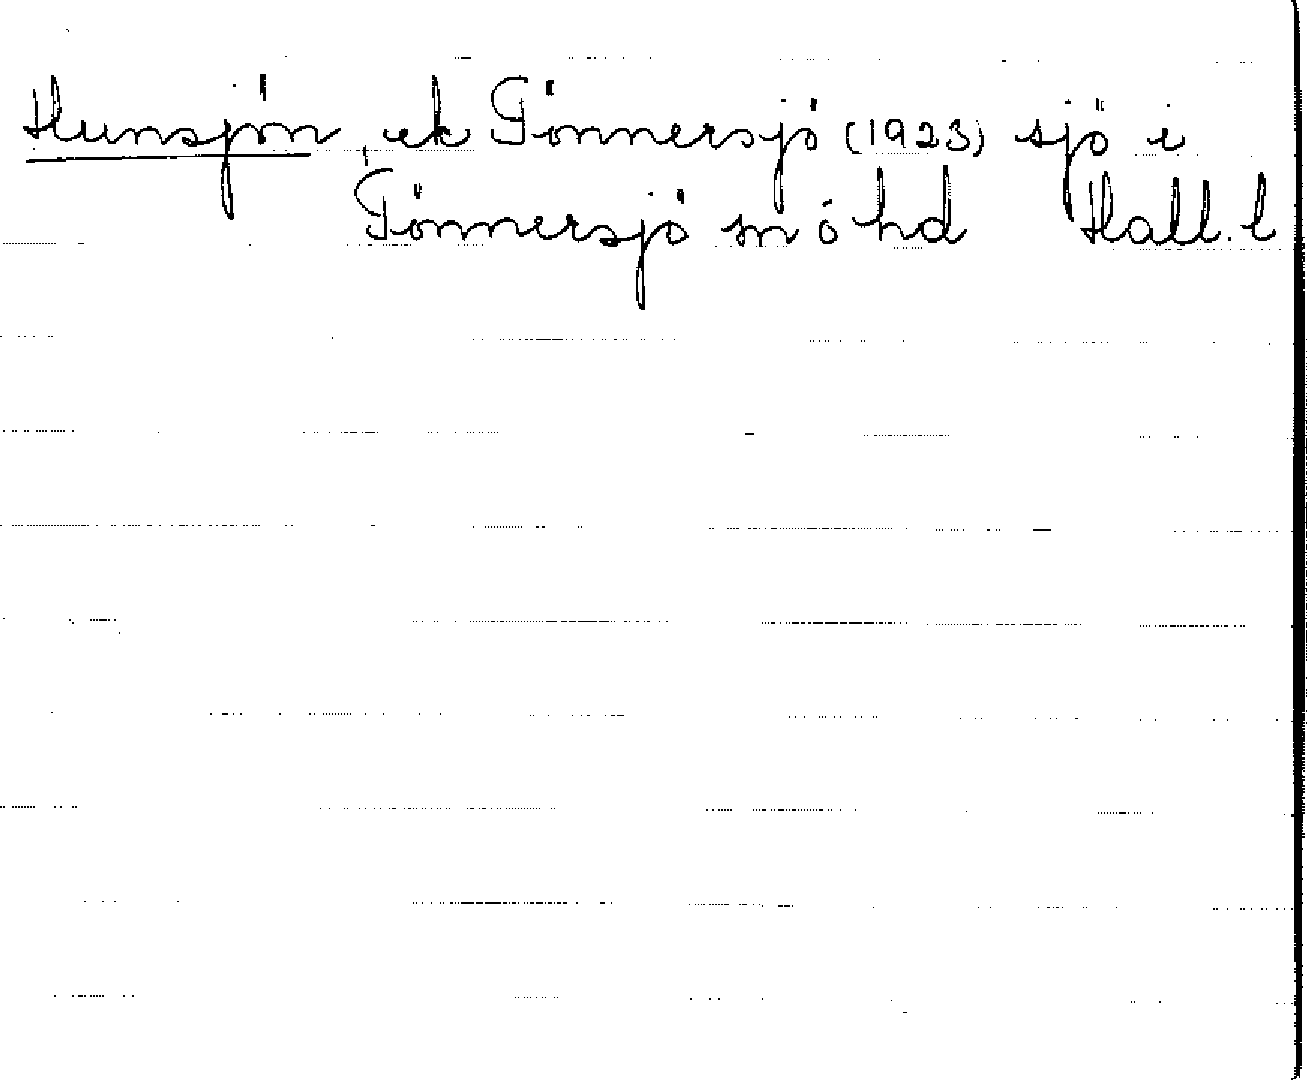 Hunsjön, ek Tönnersjö (1923) sjö i
Tönnersjö sn o hd Hall. l